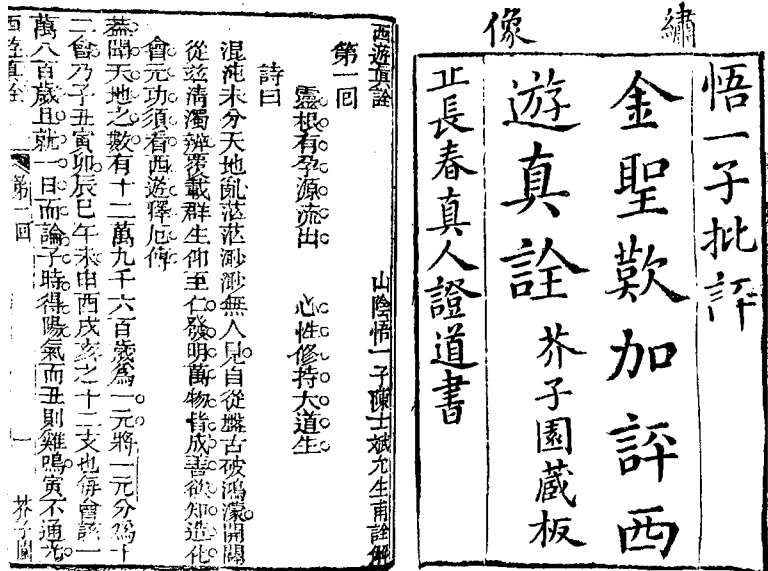 繡像
悟一子批評
金聖歎加評西
遊真詮 芥子園藏板
丘長春真人證道書
西遊真詮
山陰悟一子陳士斌允生甫詮解
第一回
靈根有孕源流出 心性修持大道生
詩曰
混沌未分天地亂茫茫渺渺無人見自從盤古破鴻濛開闢
從茲清濁辨覆載群生仰至仁發明萬物皆成善欲知造化
會元功須看西遊釋厄傳
蓋聞天地之數有十二萬九千六百歲為一元將一元分為十
二會乃子丑寅卯辰巳午未申酉戌亥之十二支也每會該一
萬八百歲且就一日而論子時得陽氣而丑則雞鳴寅不通光
西遊真詮 第一回 一 芥子園